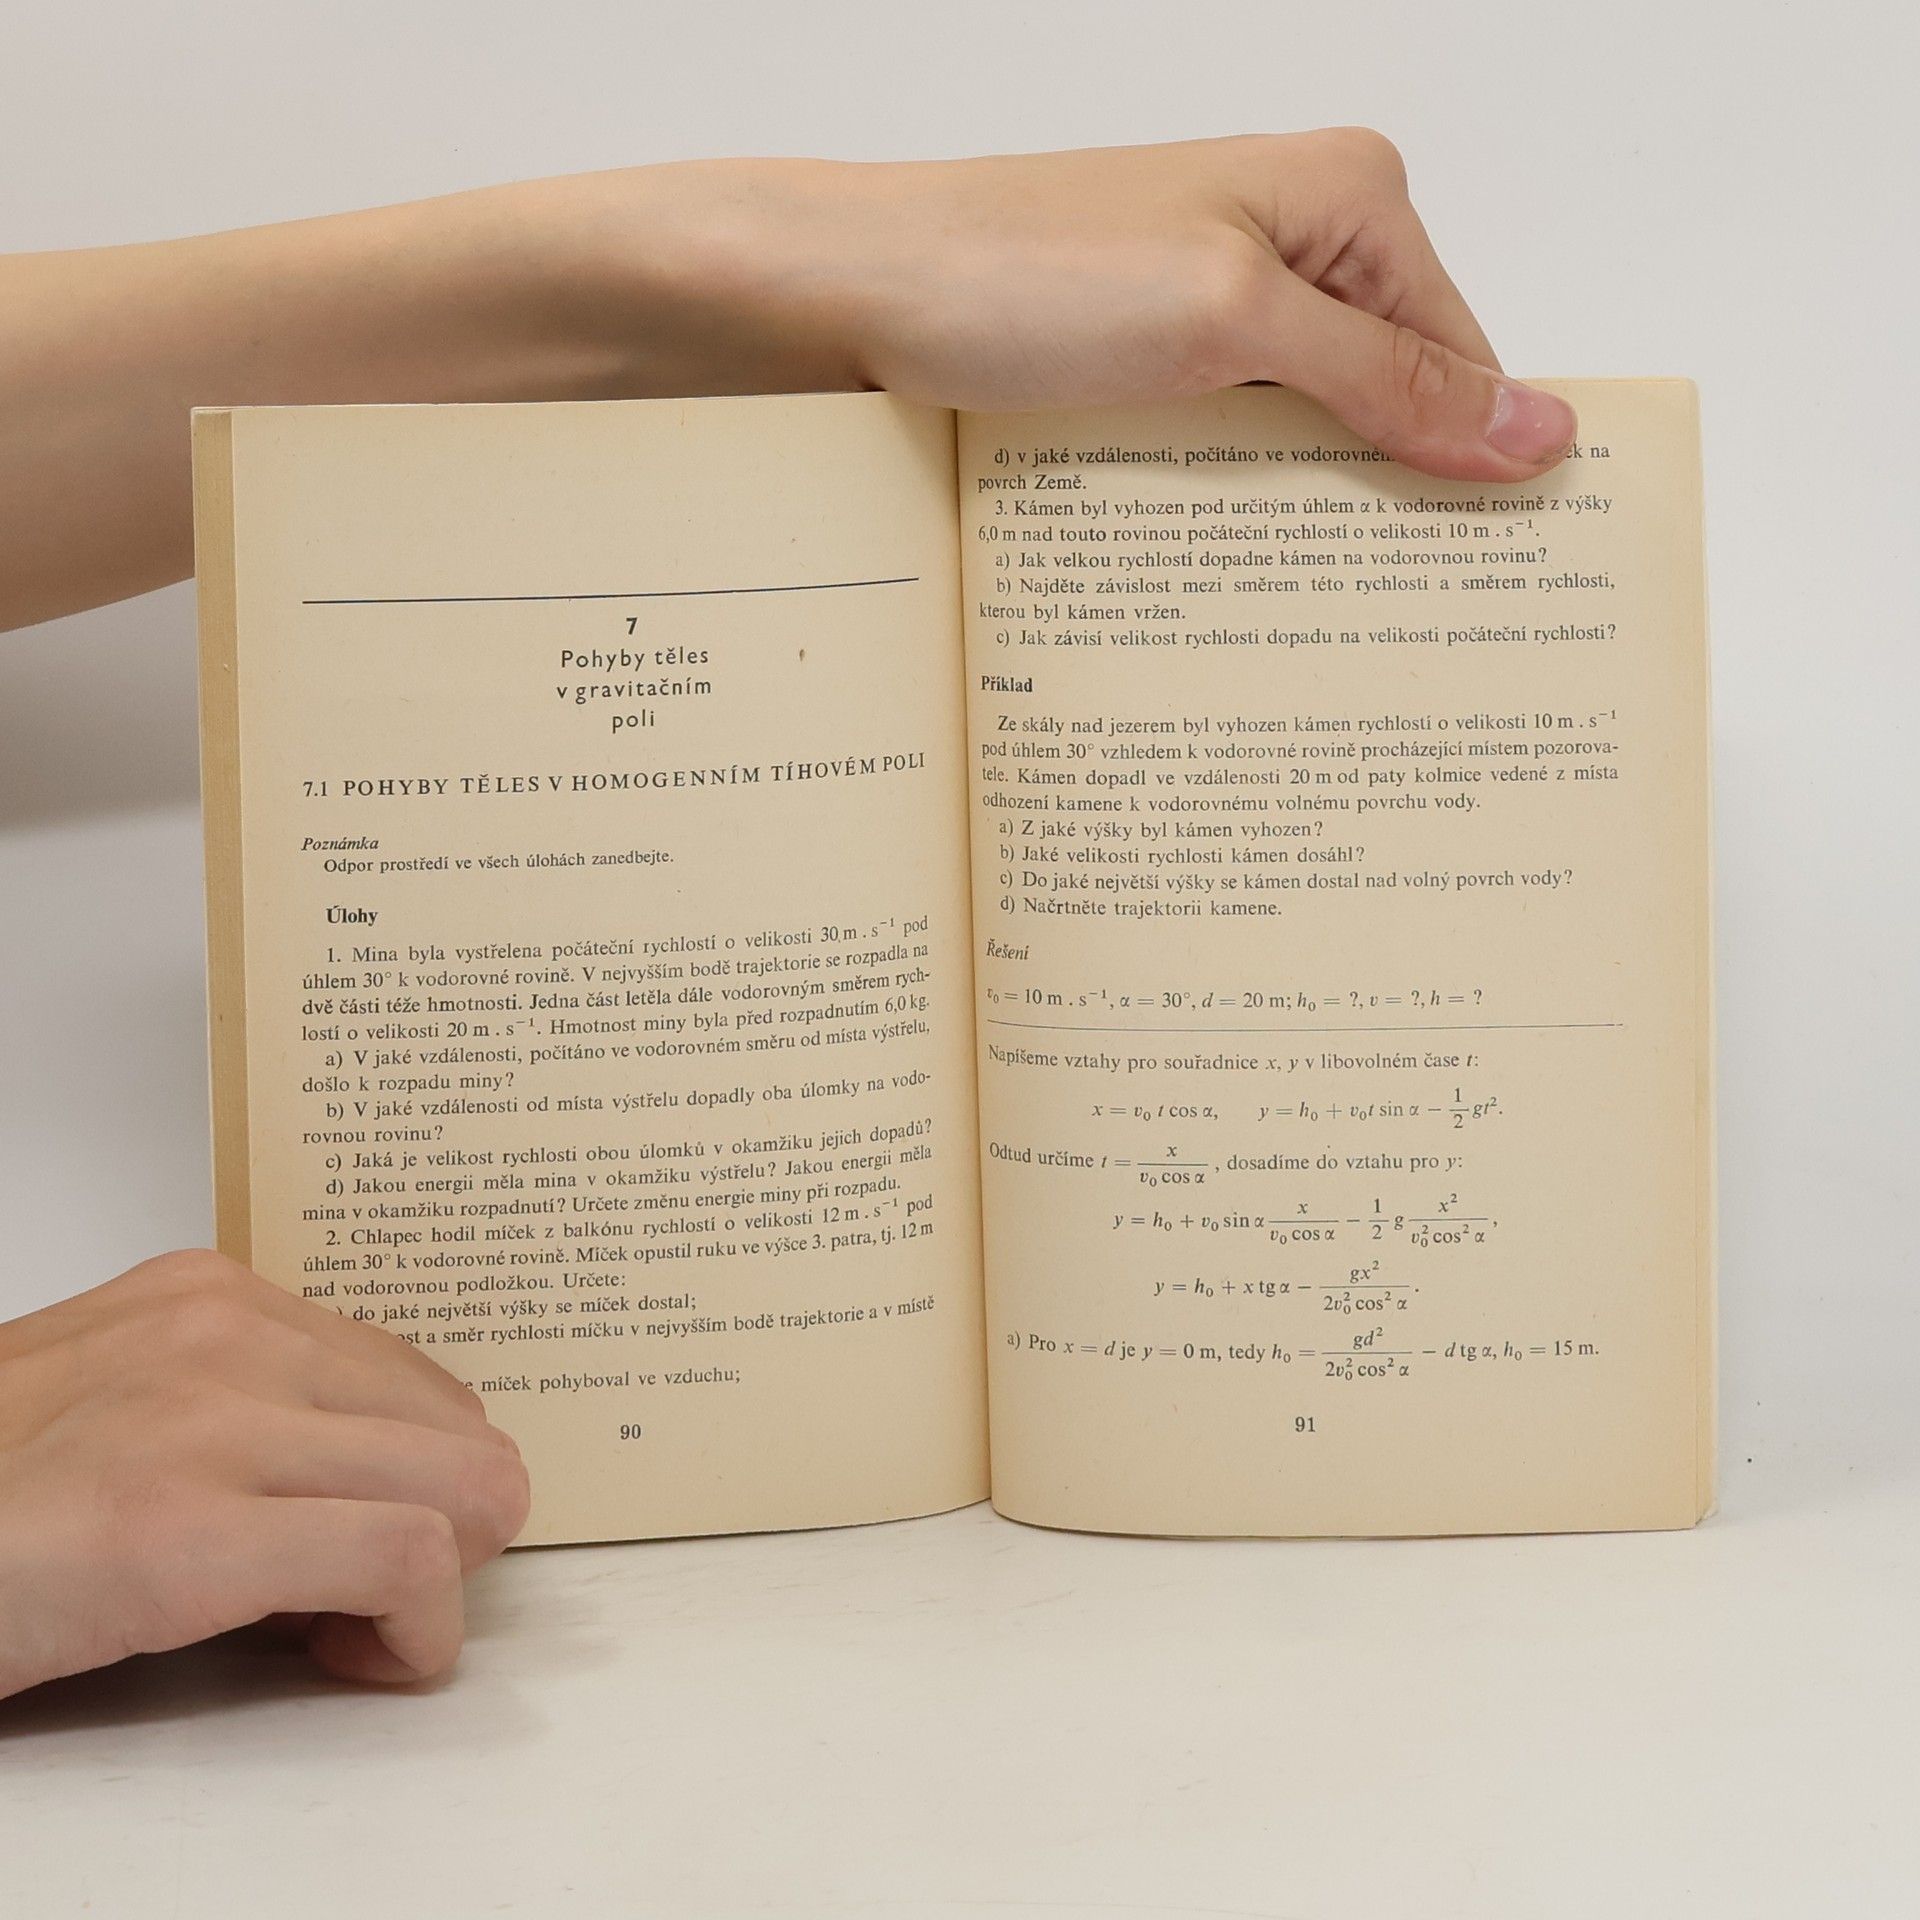 7
Pohyby těles
v gravitačním
poli
7.1 POHYBY TĚLES V HOMOGENNÍM TÍHOVÉM POLI
Poznámka
Odpor prostředí ve všech úlohách zanedbejte.
Úlohy
1. Mina byla vystřelena počáteční rychlostí o velikosti 30 m . s⁻¹ pod
úhlem 30° k vodorovné rovině. V nejvyšším bodě trajektorie se rozpadla na
dvě části téže hmotnosti. Jedna část letěla dále vodorovným směrem rych-
lostí o velikosti 20 m . s⁻¹. Hmotnost miny byla před rozpadnutím 6,0 kg.
a) V jaké vzdálenosti, počítáno ve vodorovném směru od místa výstřelu,
došlo k rozpadu miny?
b) V jaké vzdálenosti od místa výstřelu dopadly oba úlomky na vodo-
rovnou rovinu?
c) Jaká je velikost rychlosti obou úlomků v okamžiku jejich dopadů?
d) Jakou energii měla mina v okamžiku výstřelu? Jakou energii měla
mina v okamžiku rozpadnutí? Určete změnu energie miny při rozpadu.
2. Chlapec hodil míček z balkónu rychlostí o velikosti 12 m . s⁻¹ pod
úhlem 30° k vodorovné rovině. Míček opustil ruku ve výšce 3. patra, tj. 12 m
nad vodorovnou podložkou. Určete:
do jaké největší výšky se míček dostal;
a směr rychlosti míčku v nejvyšším bodě trajektorie a v místě
míček pohyboval ve vzduchu;
90
d) v jaké vzdálenosti, počítáno ve na
povrch Země.
3. Kámen byl vyhozen pod určitým úhlem α k vodorovné rovině z výšky
6,0 m nad touto rovinou počáteční rychlostí o velikosti 10 m . s⁻¹.
a) Jak velkou rychlostí dopadne kámen na vodorovnou rovinu?
b) Najděte závislost mezi směrem této rychlosti a směrem rychlosti,
kterou byl kámen vržen.
c) Jak závisí velikost rychlosti dopadu na velikosti počáteční rychlosti?
Příklad
Ze skály nad jezerem byl vyhozen kámen rychlostí o velikosti 10 m . s⁻¹
pod úhlem 30° vzhledem k vodorovné rovině procházející místem pozorova-
tele. Kámen dopadl ve vzdálenosti 20 m od paty kolmice vedené z místa
odhození kamene k vodorovnému volnému povrchu vody.
a) Z jaké výšky byl kámen vyhozen?
b) Jaké velikosti rychlosti kámen dosáhl?
c) Do jaké největší výšky se kámen dostal nad volný povrch vody?
d) Načrtněte trajektorii kamene.
Řešení
v₀ = 10 m . s⁻¹, α = 30°, d = 20 m; h₀ = ?, v = ?, h = ?
Napíšeme vztahy pro souřadnice x, y v libovolném čase t:
x = v₀ t cos α, y = h₀ + v₀t sin α − 1/2 gt².
Odtud určíme t = x/(v₀ cos α), dosadíme do vztahu pro y:
y = h₀ + v₀ sin α x/(v₀ cos α) − 1/2 g x²/(v₀² cos² α),
y = h₀ + x tg α − gx²/(2v₀² cos² α).
a) Pro x = d je y = 0 m, tedy h₀ = gd²/(2v₀² cos² α) − d tg α, h₀ = 15 m.
91